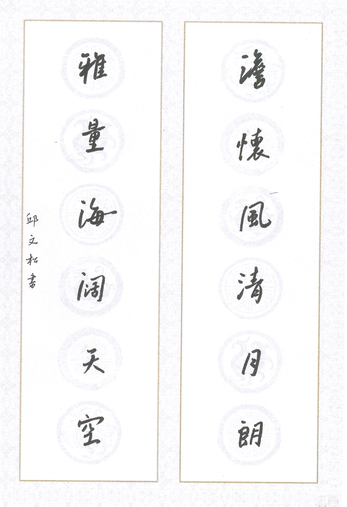 澹懷風清月朗
雅量海阔天空
邱文松書